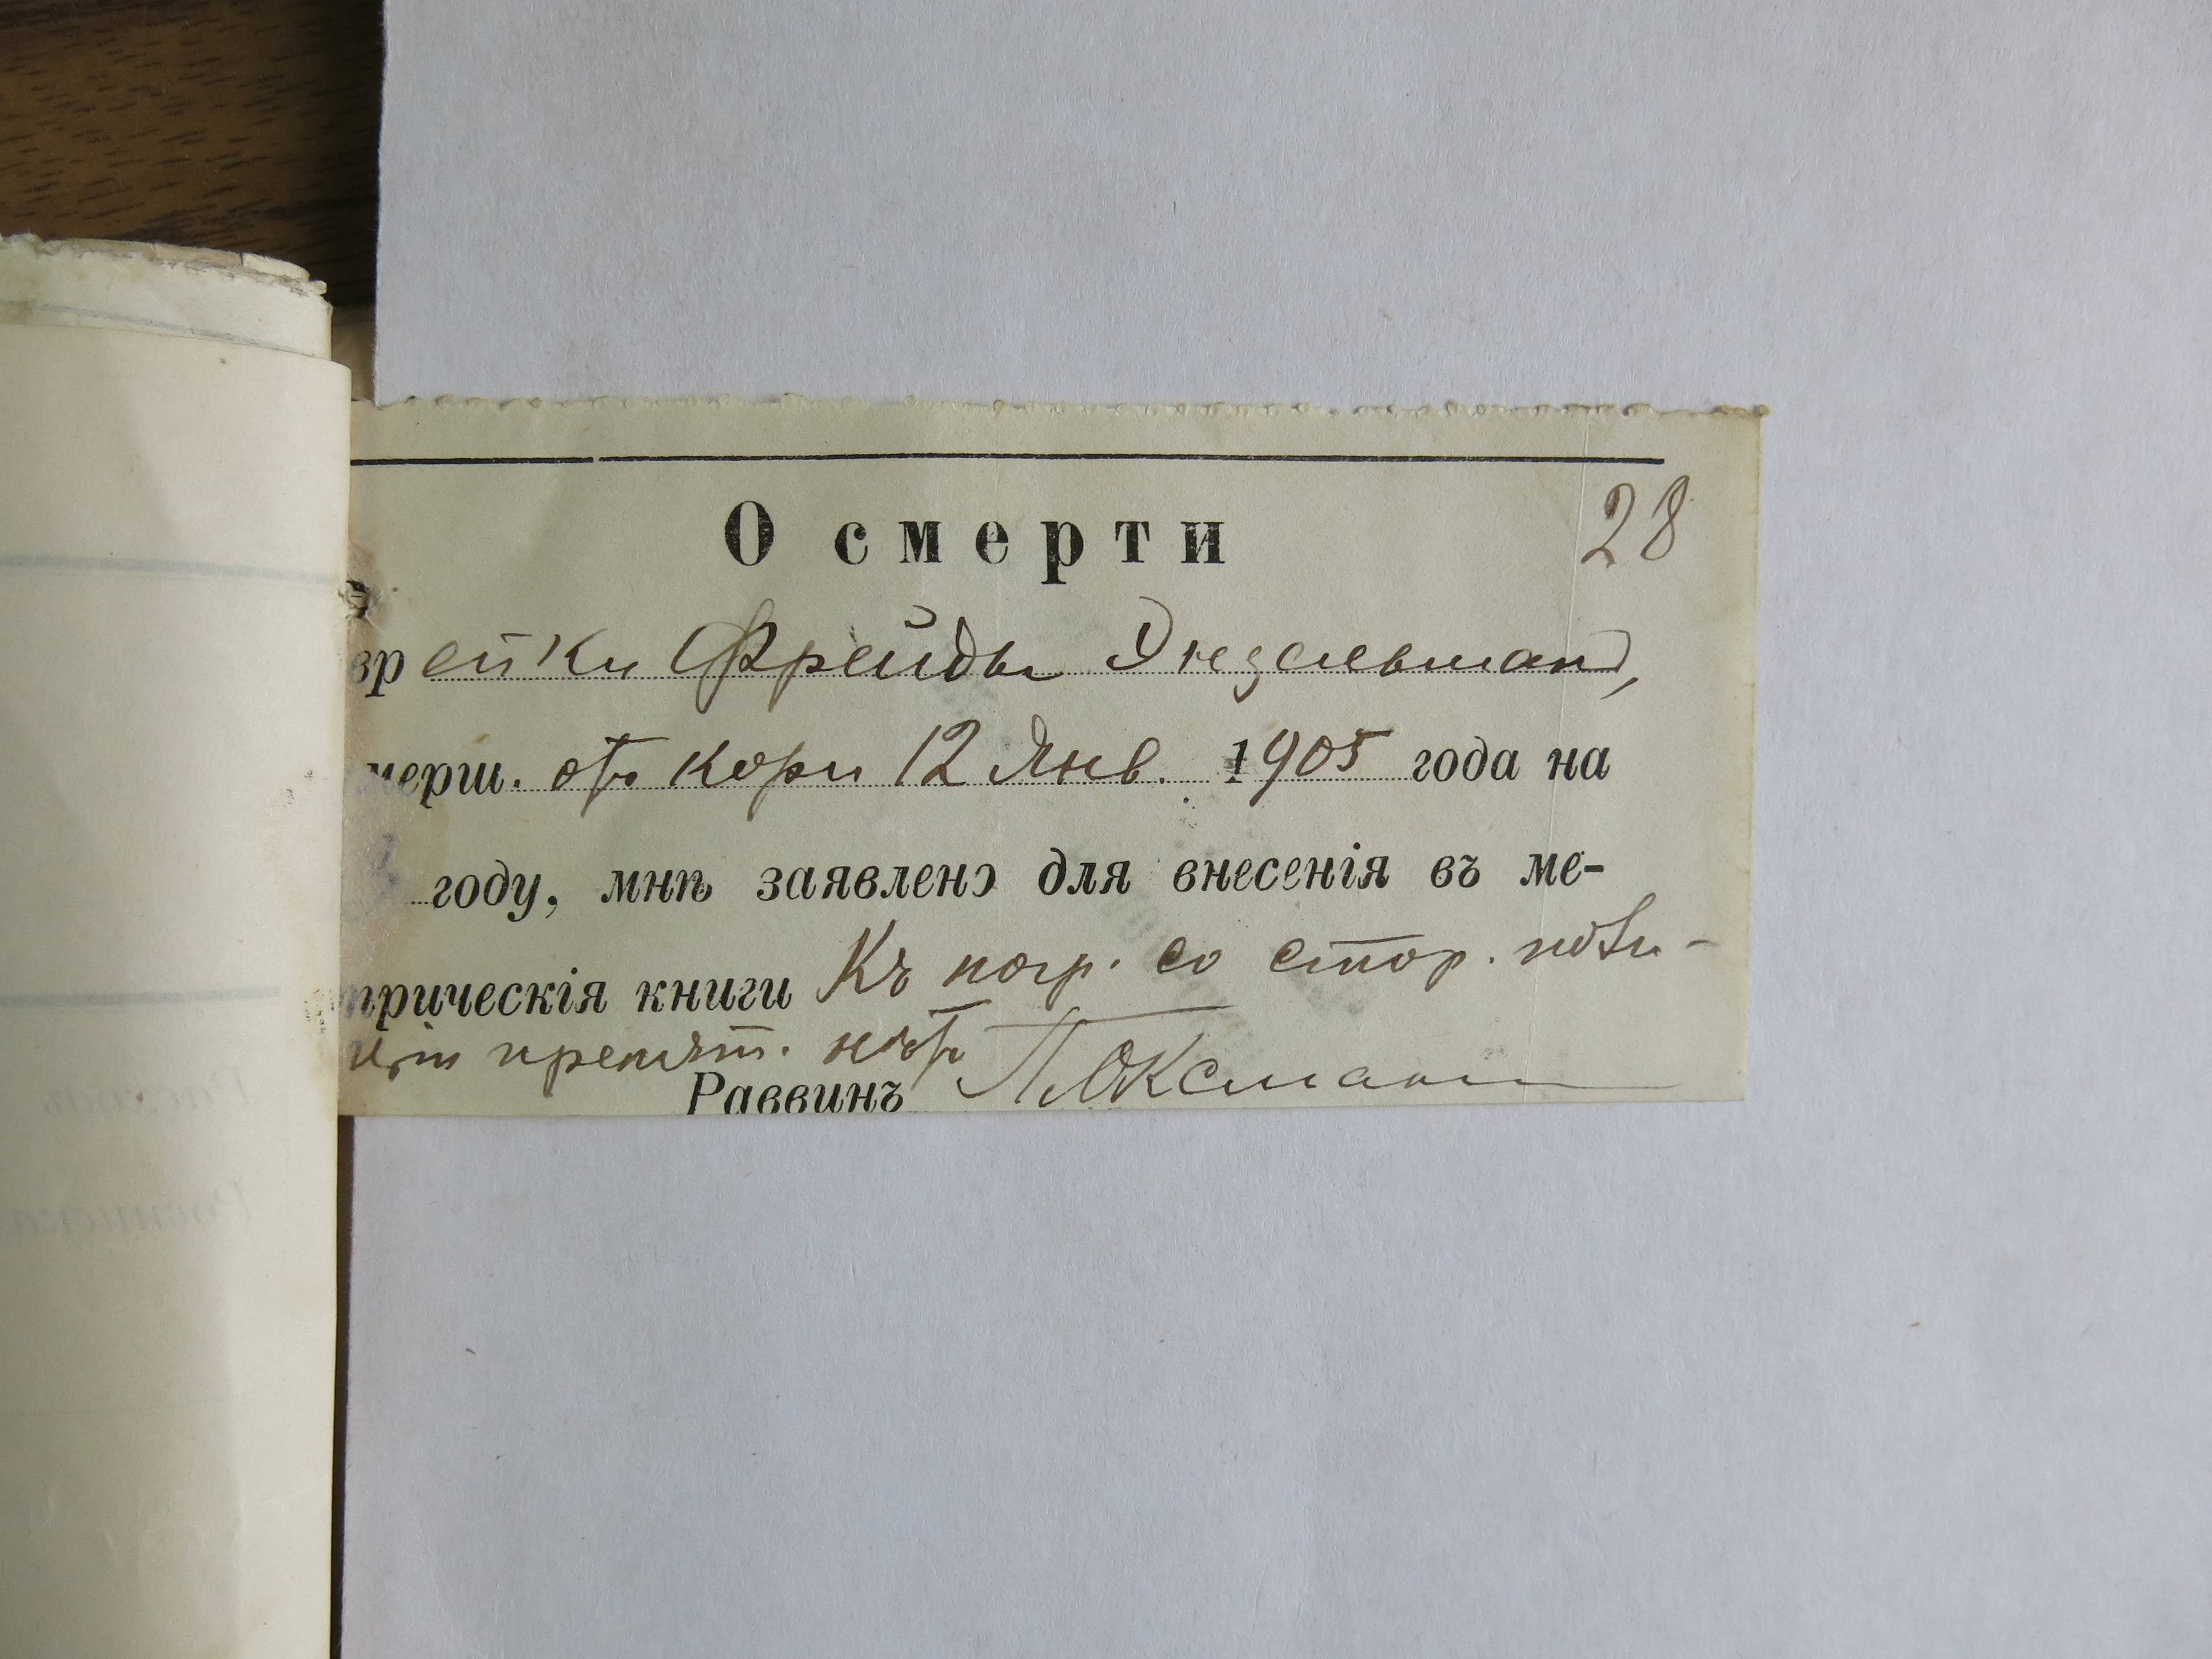 О смерти
28
вр ейки Фрейды Энзельман,
мерш. отъ кори 12 Янв. 1905 года на
году, мнѣ заявлено для внесенія въ ме-
трическія книги Къ погр. со стор. поли-
ціи препят. нѣтъ
Раввинъ П. Оксман